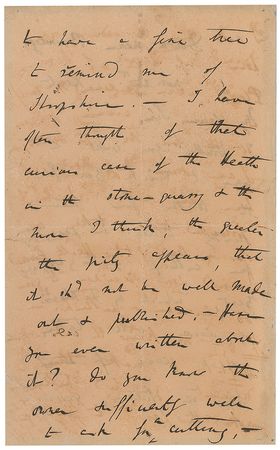 to have a fine tree
to remind me of
Shropshire. — I have
often thought of that
curious case of the Heath
in the stone-quarry & the
more I think, the greater
the pity appears, that
it shd not be well made
out & published. — Have
you ever written about
it? Do you know the
owner sufficiently well
to ask for a cutting, —